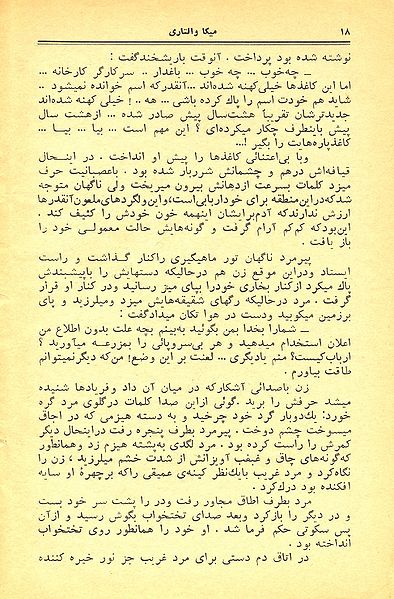 ۱۸ میکا والتاری
نوشته شده بود پرداخت . آنوقت باریشخندگفت :
ــ چه‌خوب ... چه خوب ... باغدار .. سرکارگر کارخانه ...
اما این کاغذها خیلی‌کهنه شده‌اند ... آنقدرکه اسم خوانده نمیشود ..
شاید هم خودت اسم را پاك کرده باشی ... هه .. ! خیلی کهنه شده‌اند
جدیدترشان تقریباً هشت‌سال پیش صادر شده ... ازهشت سال
پیش باینطرف چکار میکرده‌ای ؟ این مهم است ... بیا ... بیـا ...
کاغذپاره‌هایت را بگیر !...
وبا بی‌اعتنائی کاغذها را پیش او انداخت . در اینـحال
قیافه‌اش درهم و چشمانش شرربار شده بود . باعصبانیت حرف
میزد کلمات بسرعت ازدهانش بیرون میریخت ولی ناگهان متوجه
شدکه‌دراین‌منطقه برای خودارباب‌ی‌است‌واین‌ولگردهای‌ملعون‌آنقدرها
ارزش ندارندکه آدم‌برایشان اینهمه خون خودش را کثیف کند .
این‌بودکه کم‌کم آرام گرفت و گونه‌هایش حالت معمولـی خود را
باز یافت .
پیرمرد ناگهان تور ماهیگیری راکنار گـذاشت و راست
ایستاد ودراین موقع زن هم درحالیکه دستهایش را باپیشبندش
پاك میکرد ازکنار بخاری خودرا بپای میز رسانید ودر کنار او قرار
گرفت . مرد درحالیکه رگهای شقیقه‌هایش میزد ومیلرزید و پای
برزمین میکوبید ودست در هوا تکان میدادگفت :
ــ شمارا بخدا بمن بگوئید به‌بینم بچه علت بدون اطلاع من
اعلان استخدام میدهید و هر بی‌سروپائی را بمزرعـه میآورید ؟
ارباب‌کیست؟ منم یادیگری ... لعنت بر این وضع! من‌که دیگرنمیتوانم
طاقت بیاورم .
زن باصدائی آشکارکه در میان آن داد وفریادها شنیده
میشد حرفش را برید .گوئی ازاین صدا کلمات درگلوی مرد گره
خورد: یك‌دوبار گرد خود چرخید و به دسته هیزمی که در اجاق
میسوخت چشم دوخت . پیرمرد بطرف پنجره رفت دراینحال دیگر
کمرش را راست کرده بود . مرد لگدی به‌پشته هیزم زد وهمانطور
که‌گونه‌های چاق و غبغب آویزانش از شدت خشم میلرزید ، زن را
نگاه‌کرد و مرد غریب بایك‌نظر کینه‌ی عمیقی راکه برچهرهٔ او سایه
افکنده بود درك‌کرد .
مرد بطرف اطاق مجاور رفت ودر را پشت سر خود بست
و در دیگر را بازکرد وبعد صدای تختخواب بگوش رسید و ازآن
پس سکوتی حکم فرما شد . او خود را همانطور روی تختخواب
انداخته بود .
در اتاق دم دستی برای مرد غریب جز نور خیره کننده